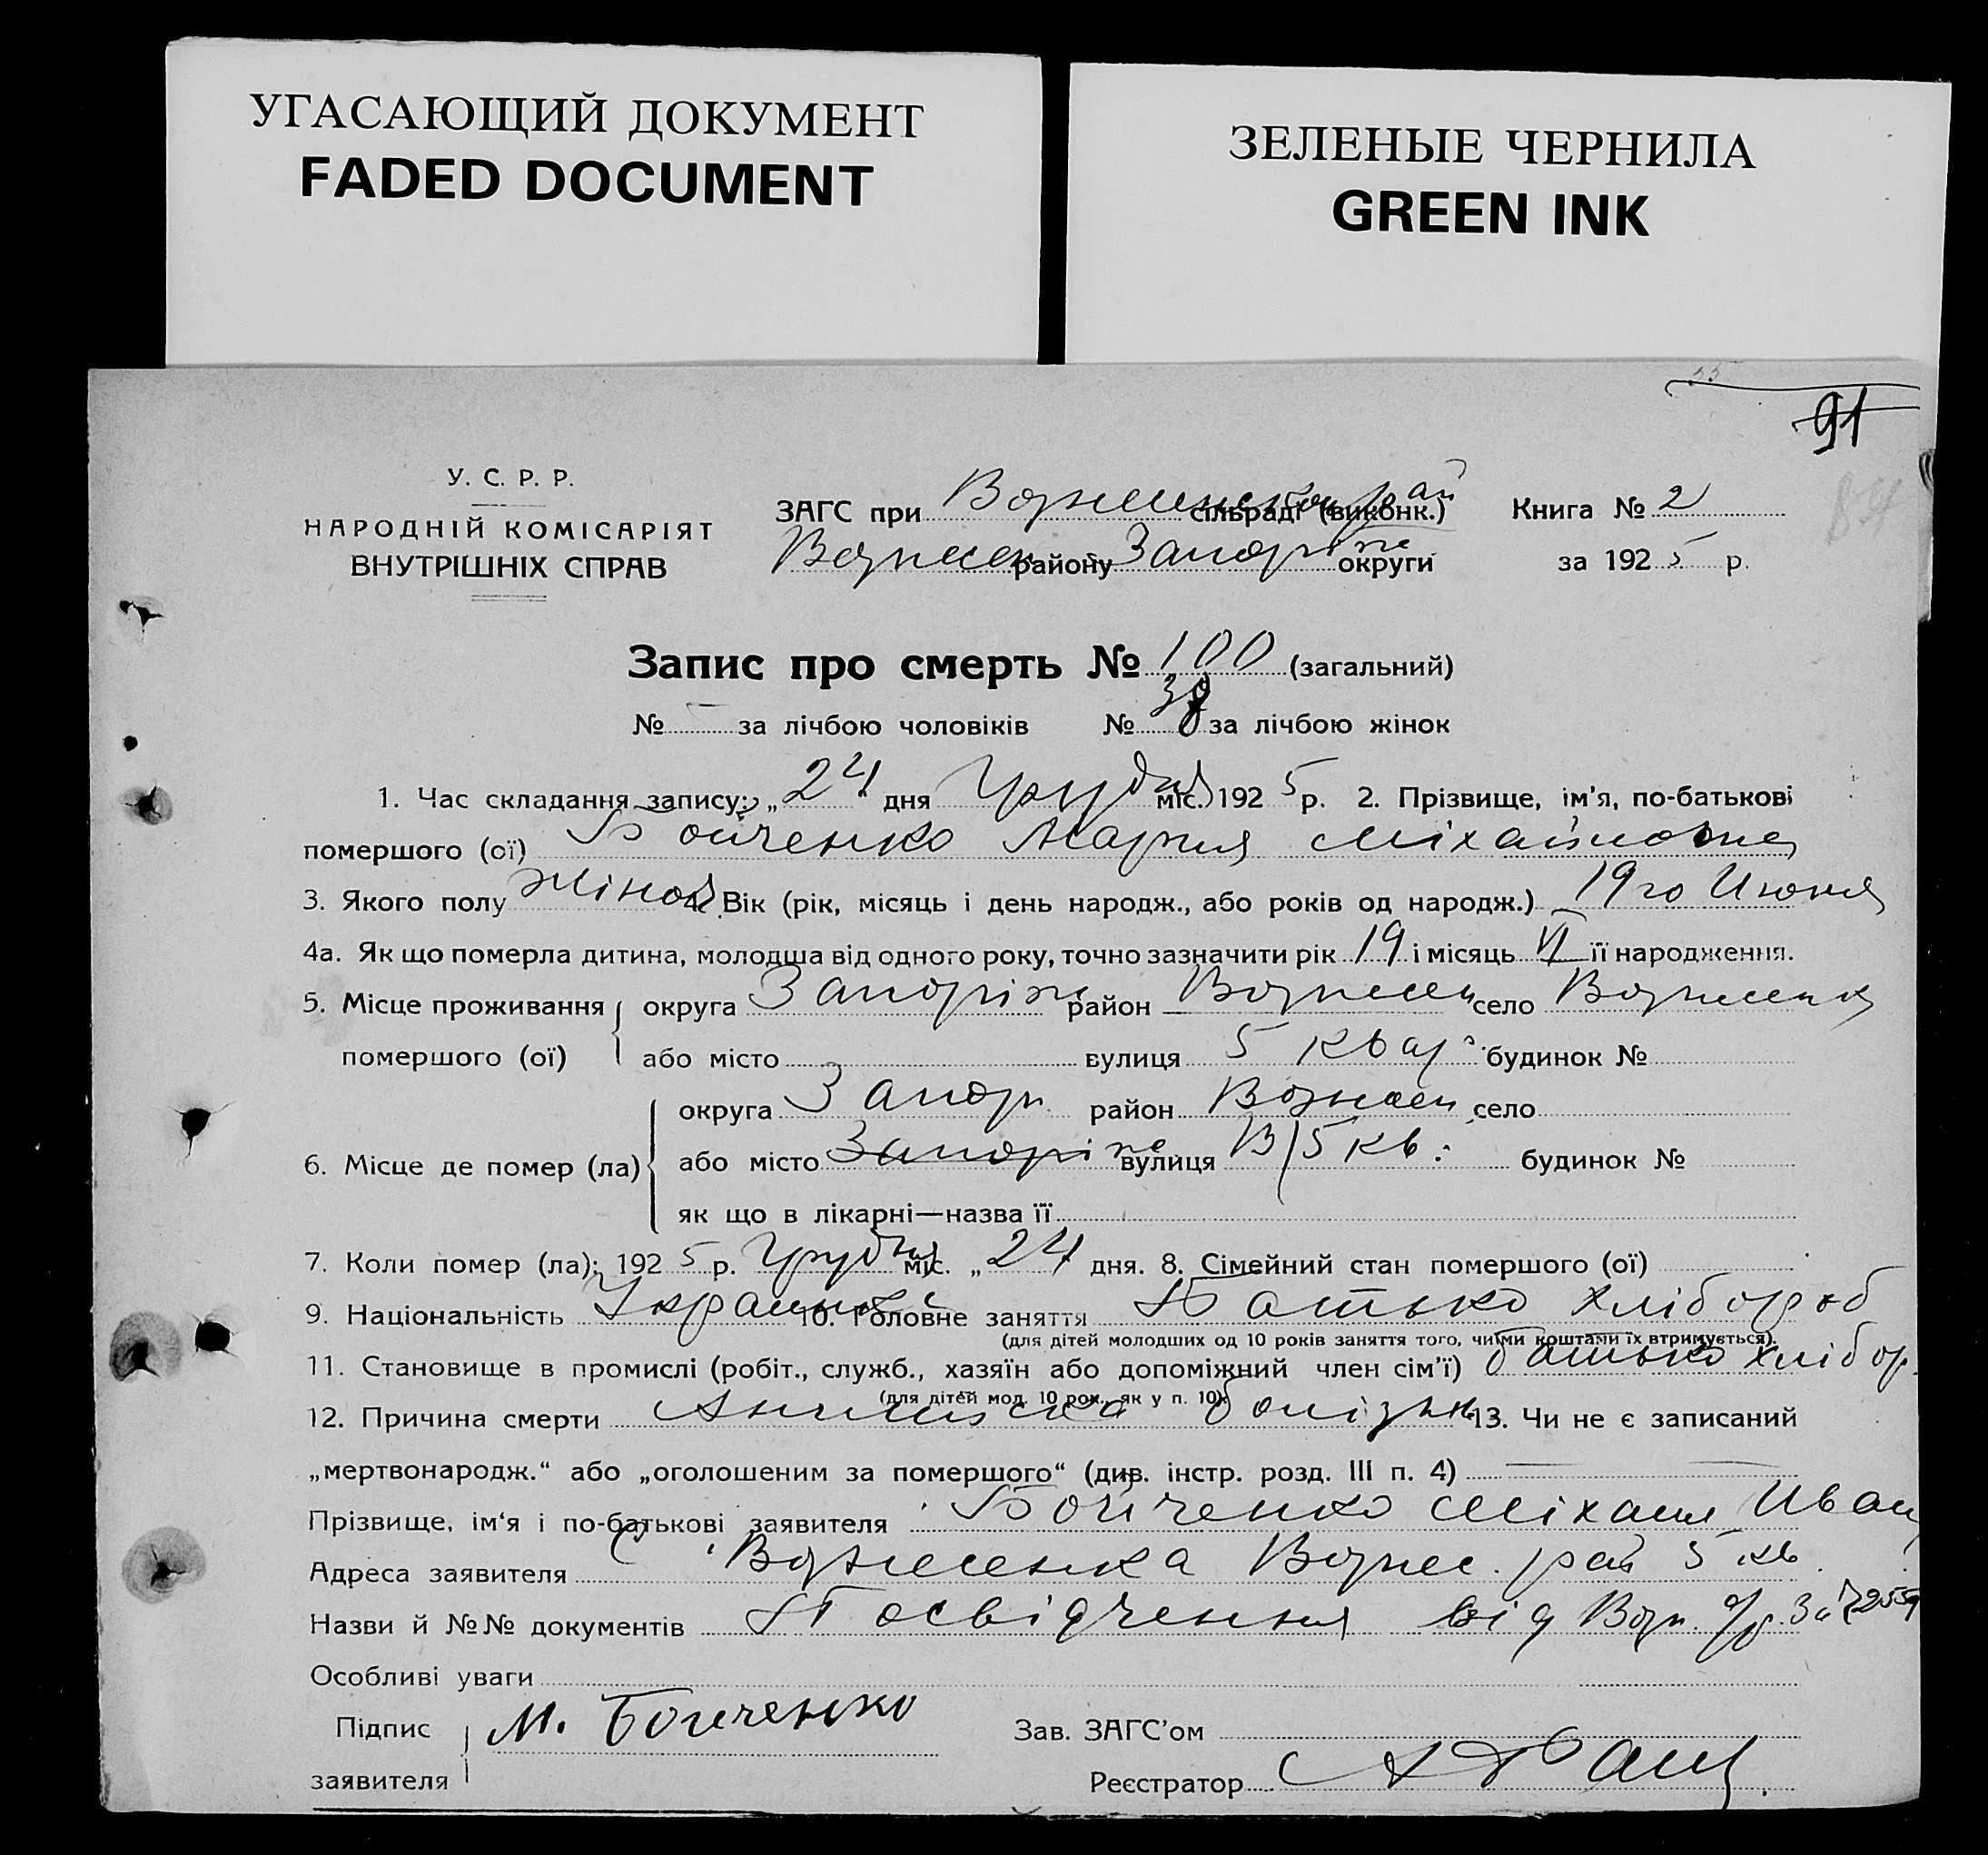 УГАСАЮЩИЙ ДОКУМЕНТ
FADED DOCUMENT
ЗЕЛЕНЫЕ ЧЕРНИЛА
GREEN INK
91
У. С. Р. Р.
НАРОДНІЙ КОМІСАРІЯТ
ВНУТРІШНІХ СПРАВ
ЗАГС при сільраді (виконк.)
району Запоріж округи
Книга № 2
за 1925 р.
Запис про смерть № 100 (загальний)
№ за лічбою чоловіків № за лічбою жінок
1. Час складання запису: „24“ дня Грудня міс. 1925 р. 2. Прізвище, ім'я, по-батькові
помершого (ої) Бойченко Мария Міхайловна
3. Якого полу 4. Вік (рік, місяць і день народж., або років од народж.) 19го Июня
4а. Як що померла дитина, молодша від одного року, точно зазначити рік 19 і місяць VI її народження.
5. Місце проживання помершого (ої) округа Запоріж район Вознесен село Вознесенка
або місто вулиця 5 квар. будинок №
6. Місце де помер (ла) округа Запор. район село
або місто Запоріж вулиця В/5 кв. будинок №
як що в лікарні—назва її
7. Коли помер (ла): 1925 р. Грудня міс. „24 дня. 8. Сімейний стан помершого (ої)
9. Національність 10. Головне заняття Батько хлібороб
(для дітей молодших од 10 років заняття того, чиїми коштами їх втримується).
11. Становище в промислі (робіт., служб., хазяїн або допоміжний член сім'ї) батько хлібор.
(для дітей мол. 10 рок., як у п. 10).
12. Причина смерти Английска болізнь 13. Чи не є записаний
„мертвонародж.“ або „оголошеним за помершого“ (див. інстр. розд. III п. 4)
Прізвище, ім'я і по-батькові заявителя Бойченко Міхаил Иван
Адреса заявителя Вознесенка Вознес. рай 5 кв
Назви й №№ документів Посвідчення від Возн. За
Особливі уваги
Підпис заявителя М. Бойченко
Зав. ЗАГС'ом
Реєстратор